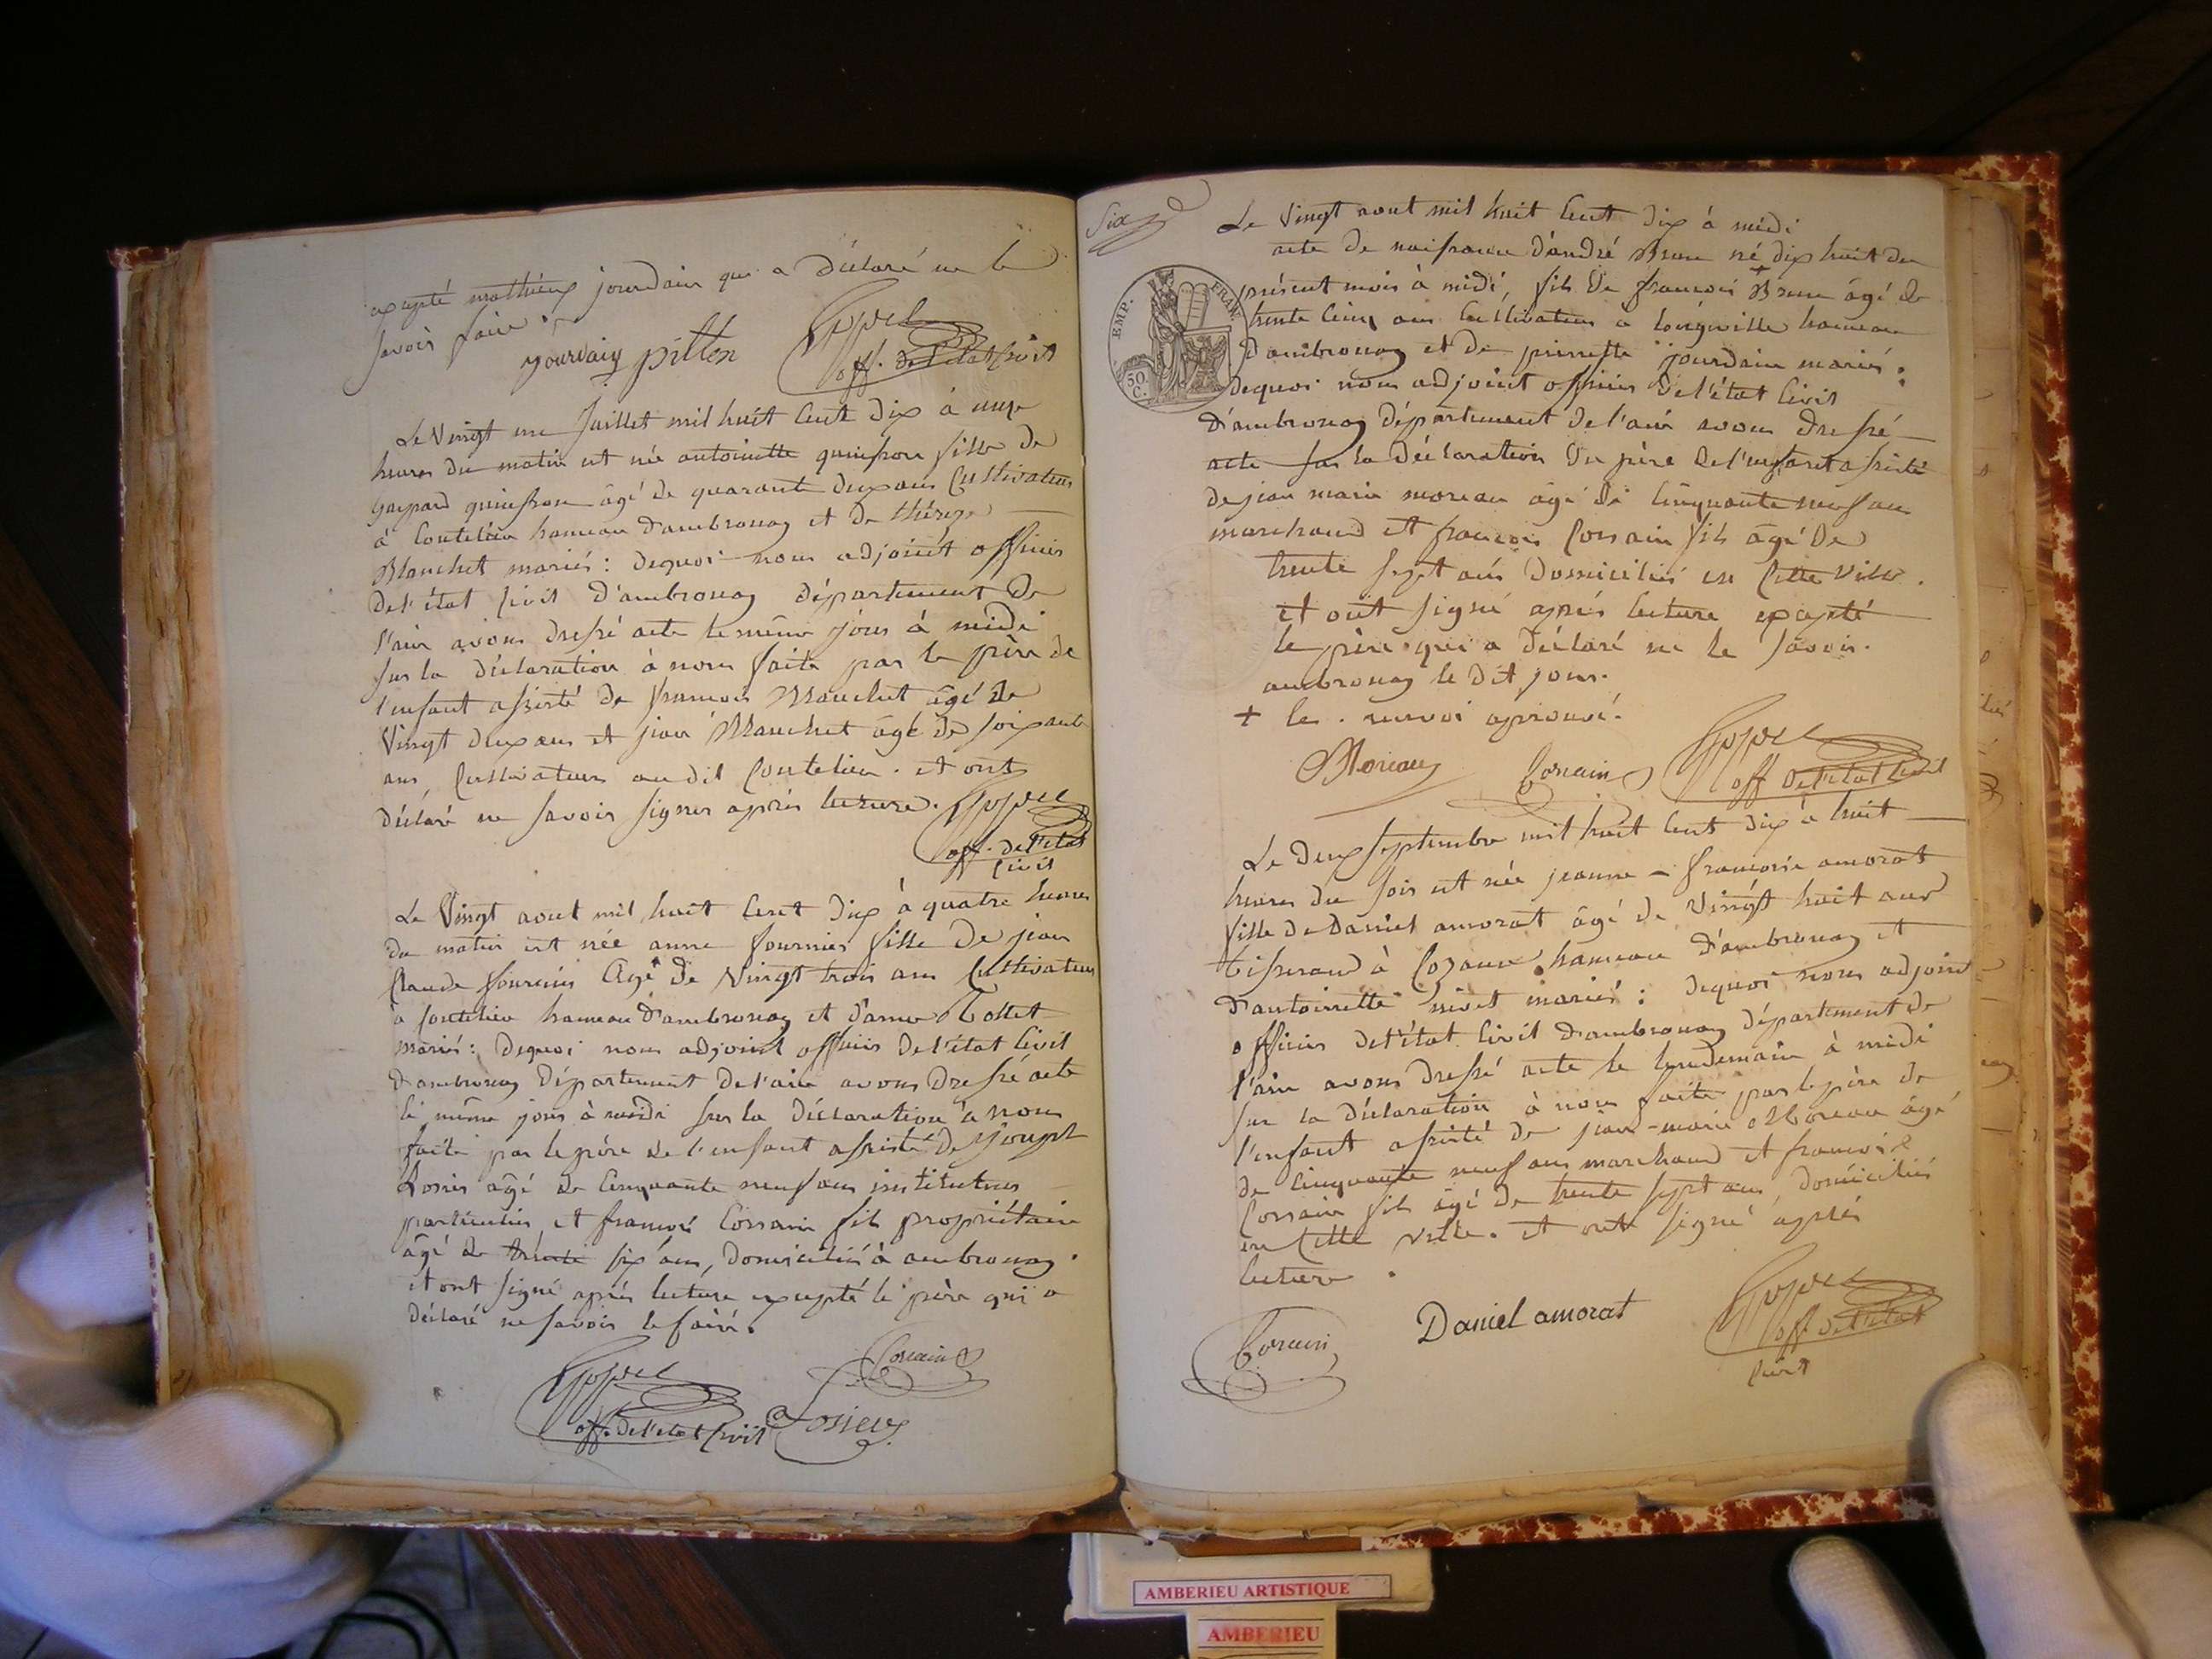 excepté mathieu jourdain qui a déclaré ne le
savoir faire.
yourdain pitton
off. de l'état civil
Le Vingt un Juillet mil huit cent dix à onze
heures du matin est née antoinette quinson fille de
gaspard quinson âgé de quarante deux ans Cultivateur
à Coutelieu hameau d'ambronay et de thérèze
Blanchet mariés : dequoi nous adjoint officier
de l'état civil d'ambronay département de
l'ain avons dressé acte le même jour à midi
sur la déclaration à nous faite par le père de
l'enfant assisté de françois Blanchet âgé de
Vingt deux ans et jean Blanchet âgé de soixante
ans, Cultivateurs au dit Coutelieu. et ont
déclaré ne savoir signer après lecture.
off. de l'état
civil
Le Vingt aout mil huit cent dix à quatre heures
du matin est née anne fournier fille de jean
Claude fournier Agé de Vingt trois ans Cultivateur
à Coutelieu hameau d'ambronay et d'anne Tottet
mariés : dequoi nous adjoint officier de l'état civil
d'ambronay département de l'ain avons dressé acte
le même jour à midi sur la déclaration à nous
faite par le père de l'enfant assisté de joseph
Losier âgé de cinquante neuf ans instituteur
particulier, et françois Corrain fils propriétaire
âgé de trente six ans, domiciliés à ambronay.
et ont signé après lecture excepté le père qui a
déclaré ne savoir le faire.
Corrain
off. de l'état civil
Six
EMP. FRAN.
50 C.
Le Vingt aout mil huit cent dix à midi
acte de naissance d'andré Brun né + dix huit du
présent mois à midi, fils de françois Brun âgé de
trente cinq ans Cultivateur à longeville hameau
d'ambronay et de pierrette jourdain mariés :
dequoi nous adjoint officier de l'état civil
d'ambronay département de l'ain avons dressé
acte sur la déclaration du père de l'enfant assisté
de jean marie moreau âgé de cinquante neuf ans
marchand et françois Corrain fils âgé de
trente sept ans domiciliés en cette ville.
et ont signé après lecture excepté
le père qui a déclaré ne le savoir.
ambronay le dit jour.
+ le. renvoi aprouvé.
Moreau Corrain
off de l'état civil
Le deux septembre mil huit cent dix à huit
heures du soir est née jeanne - françoise amorat
fille de Daniel amorat âgé de Vingt huit ans
tisserand à Cozance hameau d'ambronay et
d'antoinette nivet mariés : dequoi nous adjoint
officier de l'état civil d'ambronay département de
l'ain avons dressé acte le lendemain à midi
sur la déclaration à nous faite par le père de
l'enfant assisté de jean-marie Moreau âgé
de cinquante neuf ans marchand et françois
Corrain fils âgé de trente sept ans, domiciliés
en cette ville. et ont signé après
lecture.
Corrain
Daniel amorat
off. de l'état
civil
AMBERIEU ARTISTIQUE
AMBERIEU